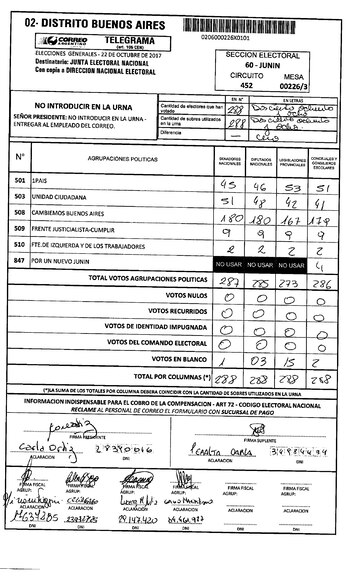 02- DISTRITO BUENOS AIRES
CORREO ARGENTINO
TELEGRAMA
(art. 105 CEN)
ELECCIONES GENERALES - 22 DE OCTUBRE DE 2017
Destinatario: JUNTA ELECTORAL NACIONAL
Con copia a DIRECCION NACIONAL ELECTORAL
SECCION ELECTORAL
60 - JUNIN
CIRCUITO MESA
452 00226/3
NO INTRODUCIR EN LA URNA
SEÑOR PRESIDENTE: NO INTRODUCIR EN LA URNA - ENTREGAR AL EMPLEADO DEL CORREO.
EN Nº EN LETRAS
Cantidad de electores que han votado 288 Doscientos ochenta y ocho
Cantidad de sobres utilizados en la urna 288 Doscientos ochenta y ocho
Diferencia — cero
Nº AGRUPACIONES POLITICAS SENADORES NACIONALES DIPUTADOS NACIONALES LEGISLADORES PROVINCIALES CONCEJALES Y CONSEJEROS ESCOLARES
501 1PAIS 45 46 53 51
503 UNIDAD CIUDADANA 51 48 42 41
508 CAMBIEMOS BUENOS AIRES 180 180 167 179
509 FRENTE JUSTICIALISTA-CUMPLIR 9 9 9 9
510 FTE.DE IZQUIERDA Y DE LOS TRABAJADORES 2 2 2 2
847 POR UN NUEVO JUNIN NO USAR NO USAR NO USAR 4
TOTAL VOTOS AGRUPACIONES POLITICAS 287 285 273 286
VOTOS NULOS 0 0 0 0
VOTOS RECURRIDOS 0 0 0 0
VOTOS DE IDENTIDAD IMPUGNADA 0 0 0 0
VOTOS DEL COMANDO ELECTORAL 0 0 0 0
VOTOS EN BLANCO 1 03 15 2
TOTAL POR COLUMNAS (*) 288 288 288 288
(*)LA SUMA DE LOS TOTALES POR COLUMNAS DEBERA COINCIDIR CON LA CANTIDAD DE SOBRES UTILIZADOS EN LA URNA
INFORMACION INDISPENSABLE PARA EL COBRO DE LA COMPENSACION - ART 72 - CODIGO ELECTORAL NACIONAL
RECLAME AL PERSONAL DE CORREO EL FORMULARIO CON SUCURSAL DE PAGO
FIRMA PRESIDENTE FIRMA SUPLENTE
Carla Ortiz
ACLARACION DNI ACLARACION DNI
FIRMA FISCAL FIRMA FISCAL FIRMA FISCAL FIRMA FISCAL FIRMA FISCAL FIRMA FISCAL
AGRUP: AGRUP: AGRUP: AGRUP: AGRUP: AGRUP:
ACLARACION ACLARACION ACLARACION ACLARACION ACLARACION ACLARACION
29.147.420
DNI DNI DNI DNI DNI DNI